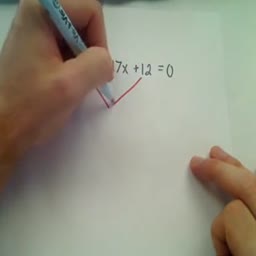 7x + 12 = 0